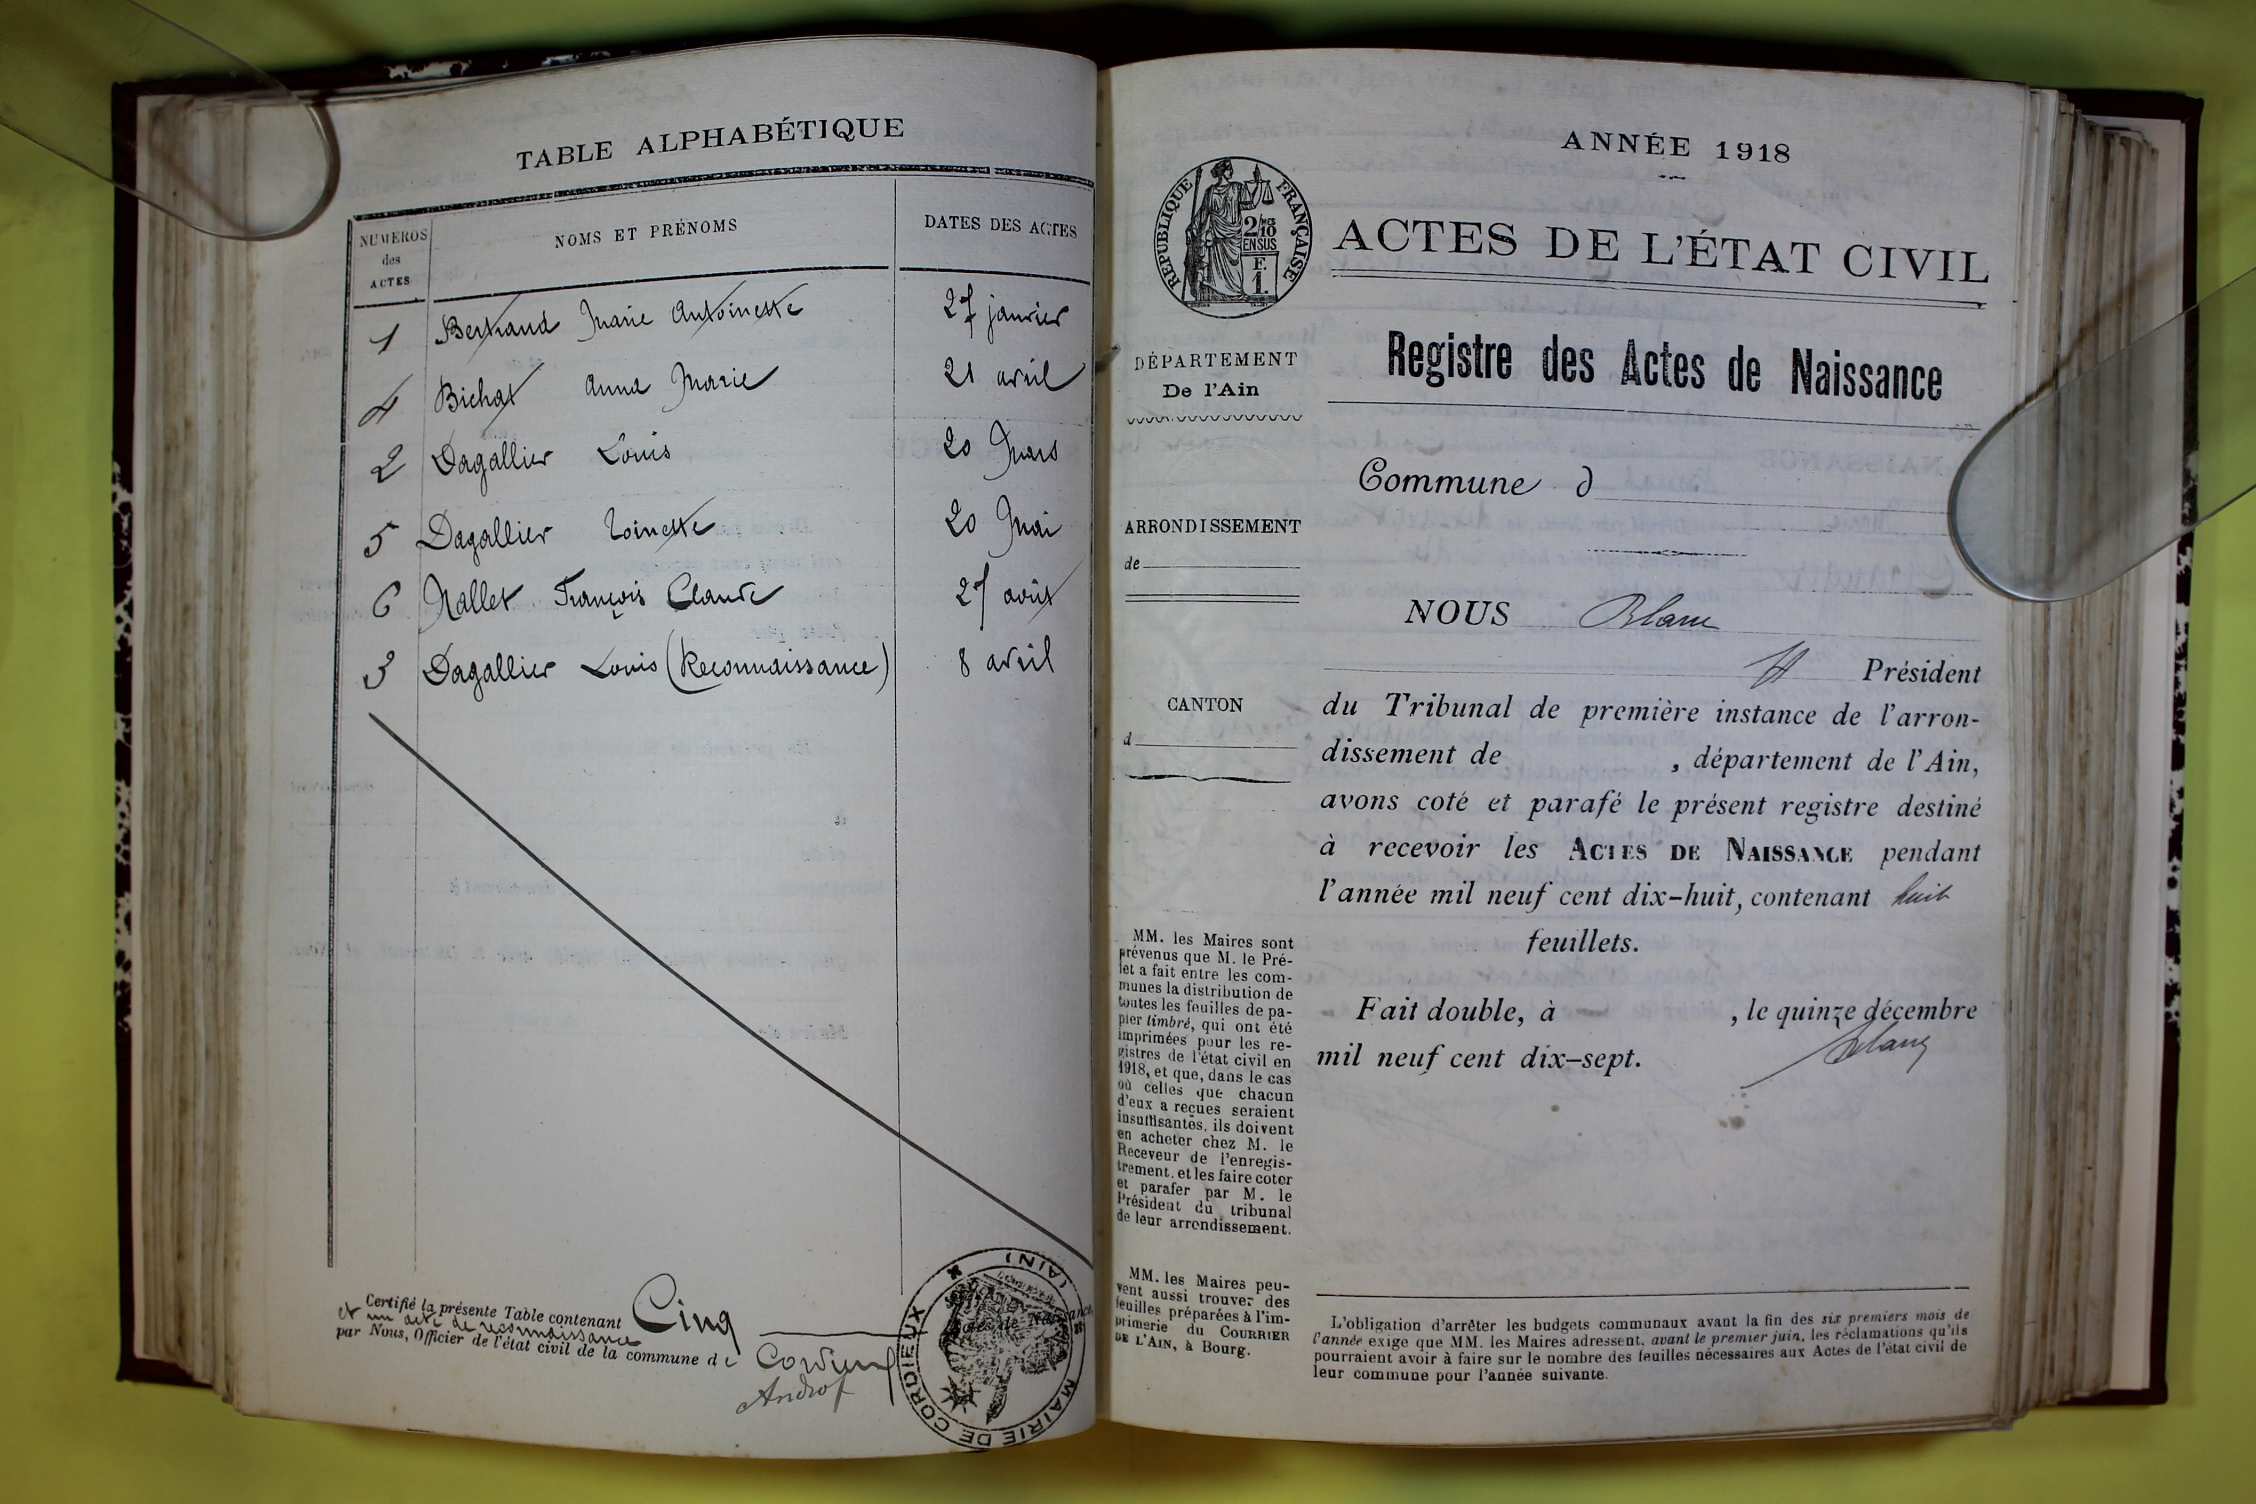 TABLE ALPHABÉTIQUE
NUMÉROS des ACTES
NOMS ET PRÉNOMS
DATES DES ACTES
1 Bertrand Marie Antoinette 27 janvier
4 Bichat Anna Marie 21 avril
2 Dagallier Louis 20 Mars
5 Dagallier Toinette 20 Mai
6 Nallet François Claude 27 août
3 Dagallier Louis (Reconnaissance) 8 avril
Certifié la présente Table contenant Cinq
et un acte de reconnaissance
par Nous, Officier de l'état civil de la commune de
MAIRIE DE CORDIEUX (AIN)
ANNÉE 1918
RÉPUBLIQUE FRANÇAISE
2/10
EN SUS
F.
1.
ACTES DE L'ÉTAT CIVIL
Registre des Actes de Naissance
DÉPARTEMENT
De l'Ain
ARRONDISSEMENT
de
CANTON
d
MM. les Maires sont
prévenus que M. le Pré-
fet a fait entre les com-
munes la distribution de
toutes les feuilles de pa-
pier timbré, qui ont été
imprimées pour les re-
gistres de l'état civil en
1918, et que, dans le cas
où celles que chacun
d'eux a reçues seraient
insuffisantes, ils doivent
en acheter chez M. le
Receveur de l'enregis-
trement, et les faire coter
et parafer par M. le
Président du tribunal
de leur arrondissement.
MM. les Maires peu-
vent aussi trouver des
feuilles préparées à l'im-
primerie du COURRIER
DE L'AIN, à Bourg.
Commune d
NOUS Blanc
Président
du Tribunal de première instance de l'arron-
dissement de , département de l'Ain,
avons coté et parafé le présent registre destiné
à recevoir les ACTES DE NAISSANCE pendant
l'année mil neuf cent dix-huit, contenant huit
feuillets.
Fait double, à , le quinze décembre
mil neuf cent dix-sept.
Blanc
L'obligation d'arrêter les budgets communaux avant la fin des six premiers mois de
l'année exige que MM. les Maires adressent, avant le premier juin, les réclamations qu'ils
pourraient avoir à faire sur le nombre des feuilles nécessaires aux Actes de l'état civil de
leur commune pour l'année suivante.